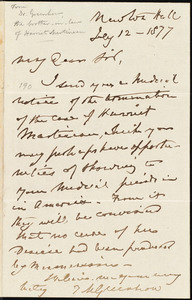 From
T. M. Greenhow
the brother-in-law
of Harriet Martineau
Newton Hall
July 12 - 1877
My Dear Sir,
I send you a Medical
notice of the termination
of the case of Harriet
Martineau, which you
may perhaps have opportu-
nities of showing to
your Medical friends
in America. From it
they will be convinced
that no cure of her
Disease had been produced
by Mesmerism -
I believe me
T M Greenhow